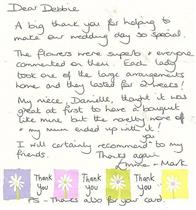 Dear Debbie
A big thank you for helping to
make our wedding day so special.
The flowers were superb & everyone
commented on them. Each lady
took one of the large arrangements
home and they lasted for 2 weeks!
My niece, Danielle, thought it was
great at first to have a bouquet
like mine, but the novelty wore off
& my mum ended up with it!
I will certainly recommend you to my
friends.
Thanks again
Mark
Thank you
Thank you
Thank you
PS - Thanks also for your card.